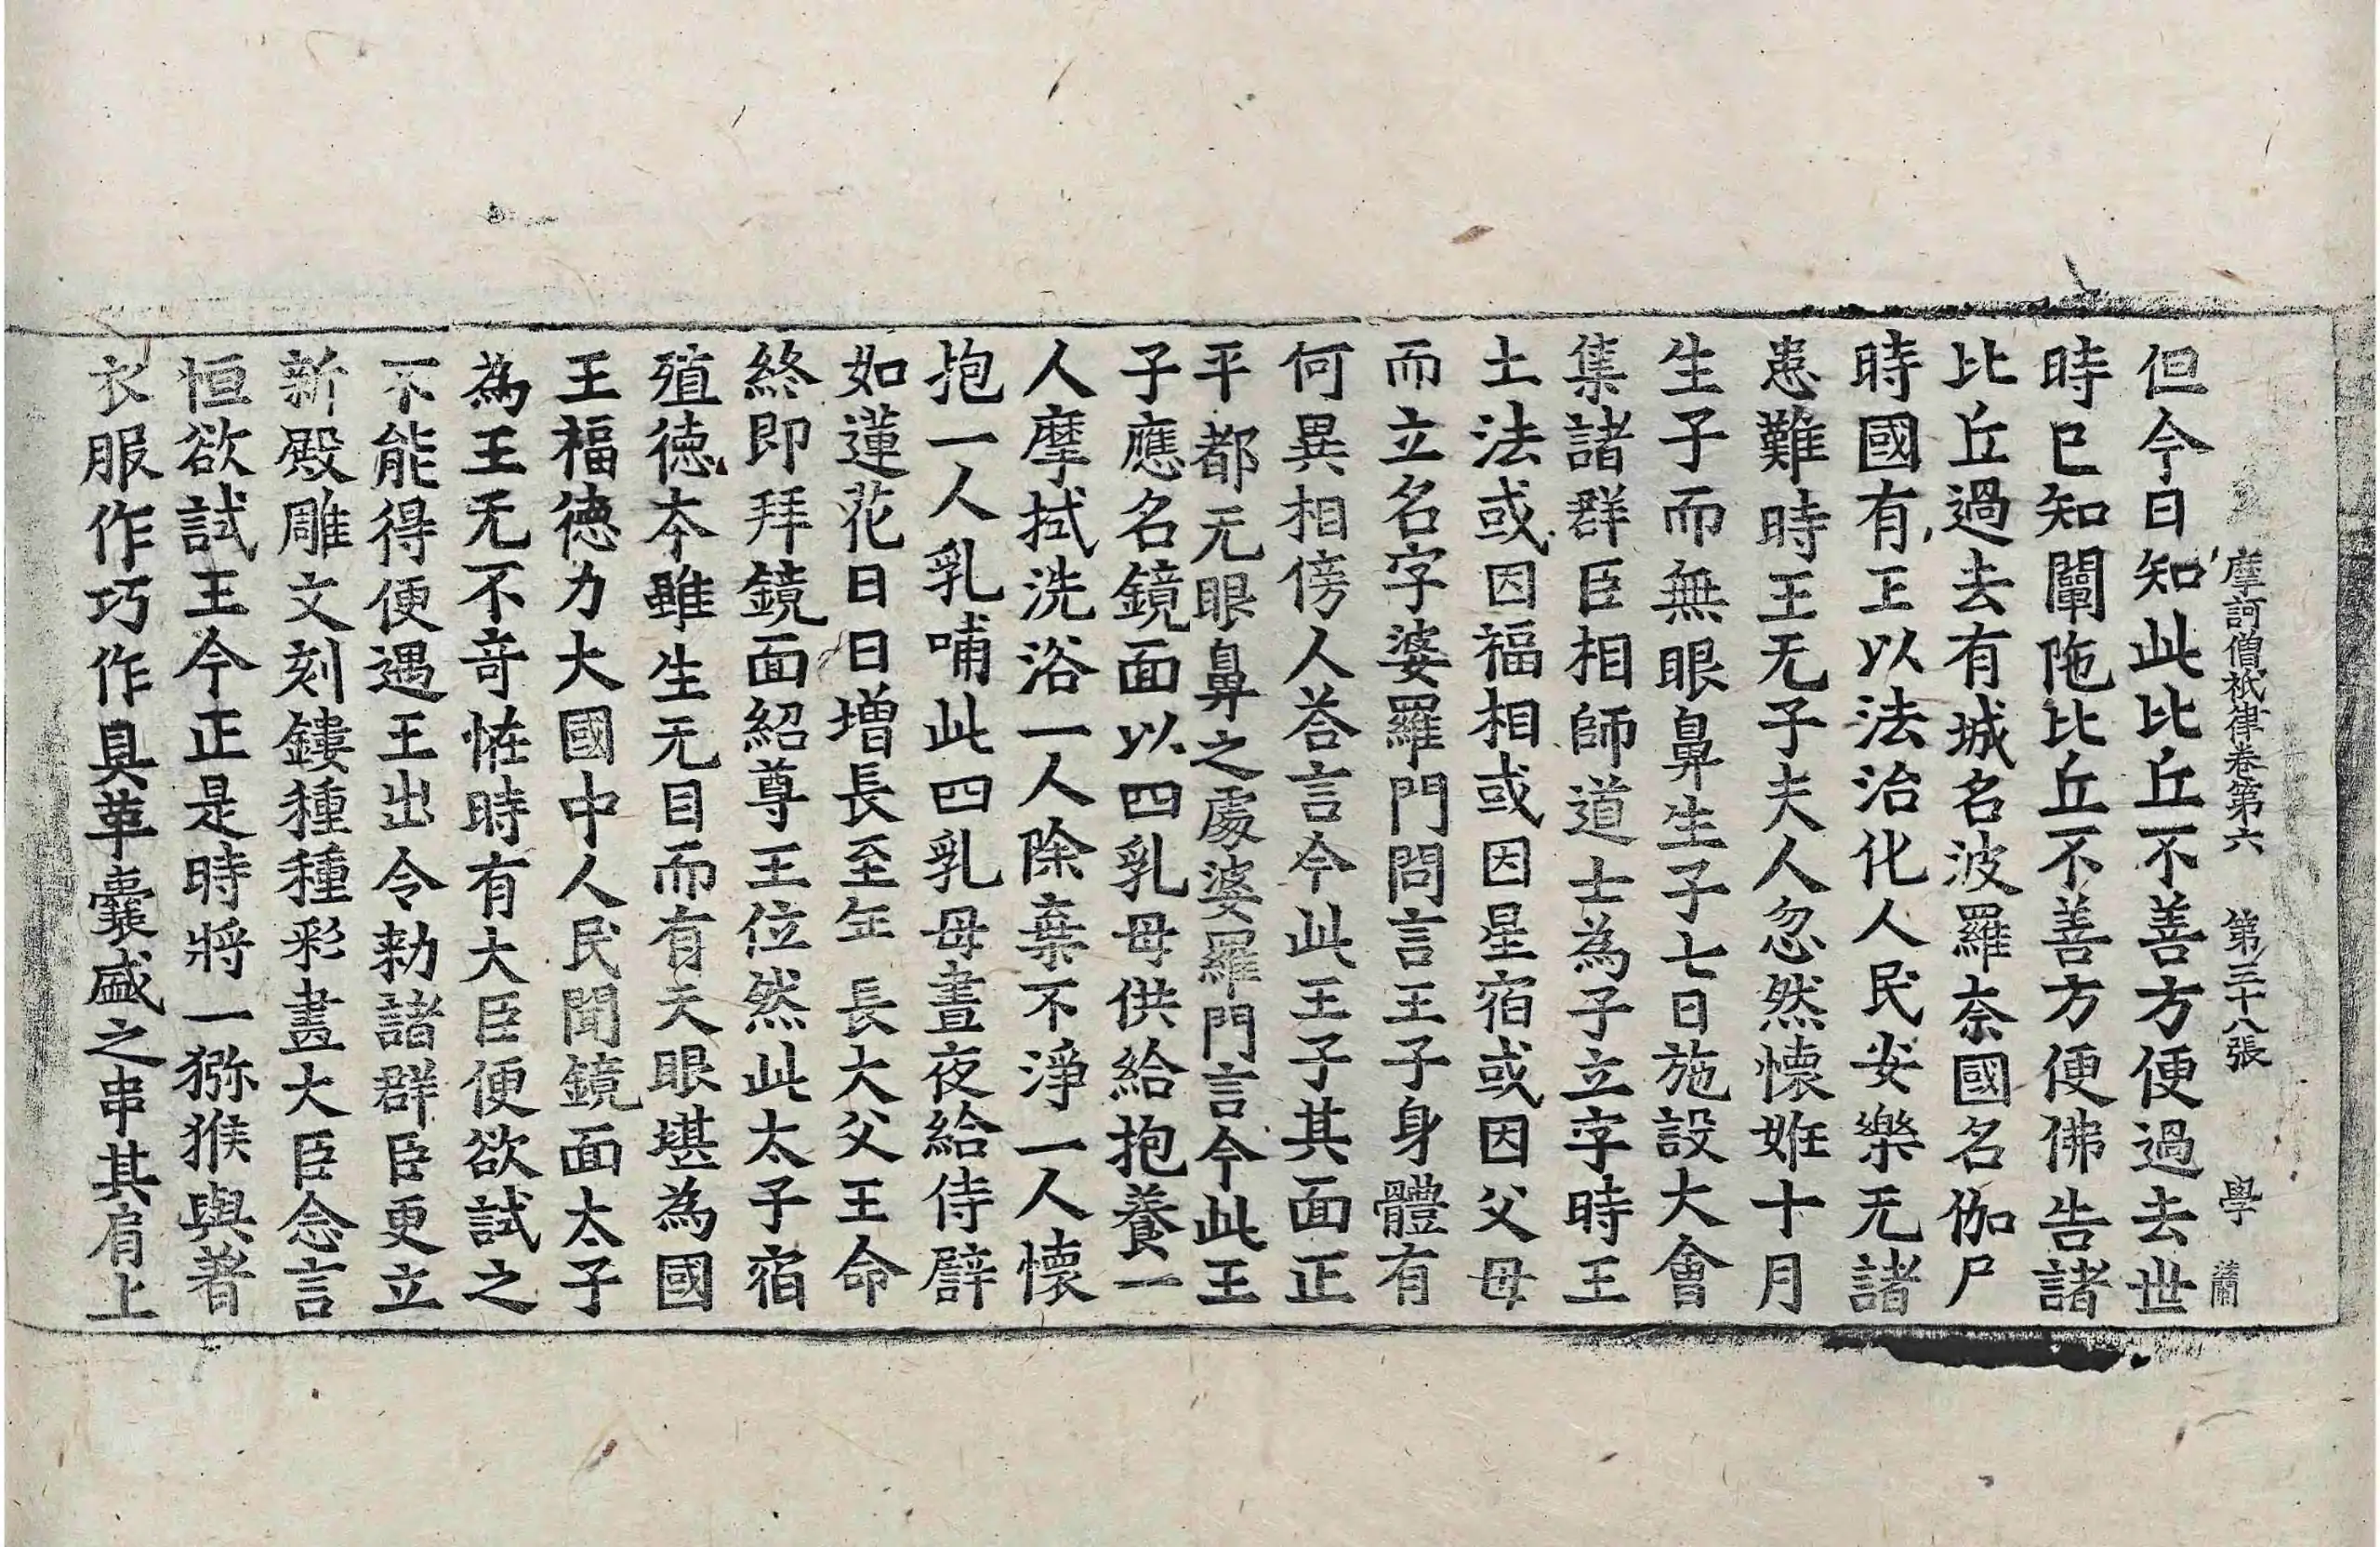 摩訶僧祇律卷第六 第三十八張 學 蘭
但今日知此比丘不善方便過去世
時已知闡陁比丘不善方便佛告諸
比丘過去有城名波羅柰國名伽尸
時國有王以法治化人民安樂无諸
患難時王无子夫人忽然懷姙十月
生子而無眼鼻生子七日施設大會
集諸群臣相師道士為子立字時王
土法或因福相或因星宿或因父母
而立名字婆羅門問言王子身體有
何異相傍人荅言今此王子其面正
平都无眼鼻之處婆羅門言今此王
子應名鏡面以四乳母供給抱養一
人摩拭洗浴一人除棄不淨一人懷
抱一人乳哺此四乳母晝夜給侍譬
如蓮花日日增長至年長大父王命
終即拜鏡面紹尊王位然此太子宿
殖德本雖生无目而有天眼堪為國
王福德力大國中人民聞鏡面太子
為王无不奇恠時有大臣便欲試之
不能得便遇王出令勑諸群臣更立
新殿雕文刻鏤種種彩畫大臣念言
恒欲試王今正是時將一獼猴與著
衣服作巧作具革囊盛之串其肩上